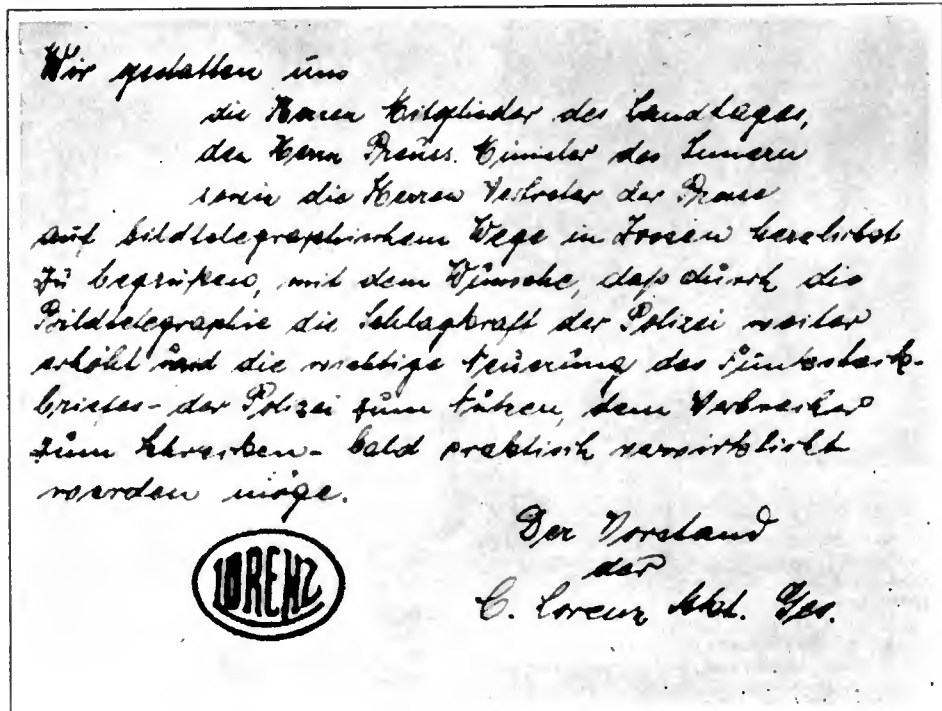 Wir gestatten uns
die Herren Mitglieder des Landtages,
den Herrn Preuss. Minister des Innern
sowie die Herren Vertreter der Presse
auf bildtelegraphischem Wege in Zossen herzlichst
zu begrüßen, mit dem Wunsche, daß durch die
Bildtelegraphie die Schlagkraft der Polizei weiter
erhöht und die wichtige Neuerung des Funksteck-
briefes - der Polizei zum Nutzen, dem Verbrecher
zum Schrecken - bald praktisch verwirklicht
werden möge.
Der Vorstand
der
C. Lorenz Akt. Ges.
LORENZ